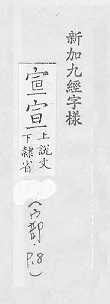 新加九經字樣
宣宣上說文下隸省
(宀部. P.8)